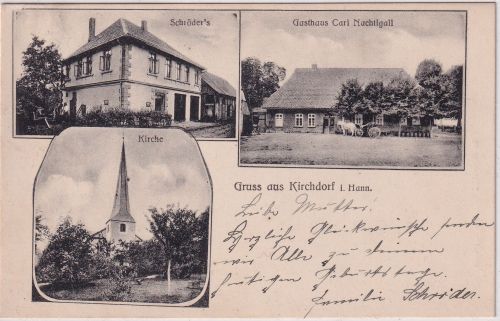 Schröder's
Gasthaus Carl Nachtigall
Kirche
Gruss aus Kirchdorf i. Hann.
Liebe Mutter!
Herzliche Glückwünsche senden
wir Alle zu deinem
heutigen Geburtstage.
Familie Schröder.